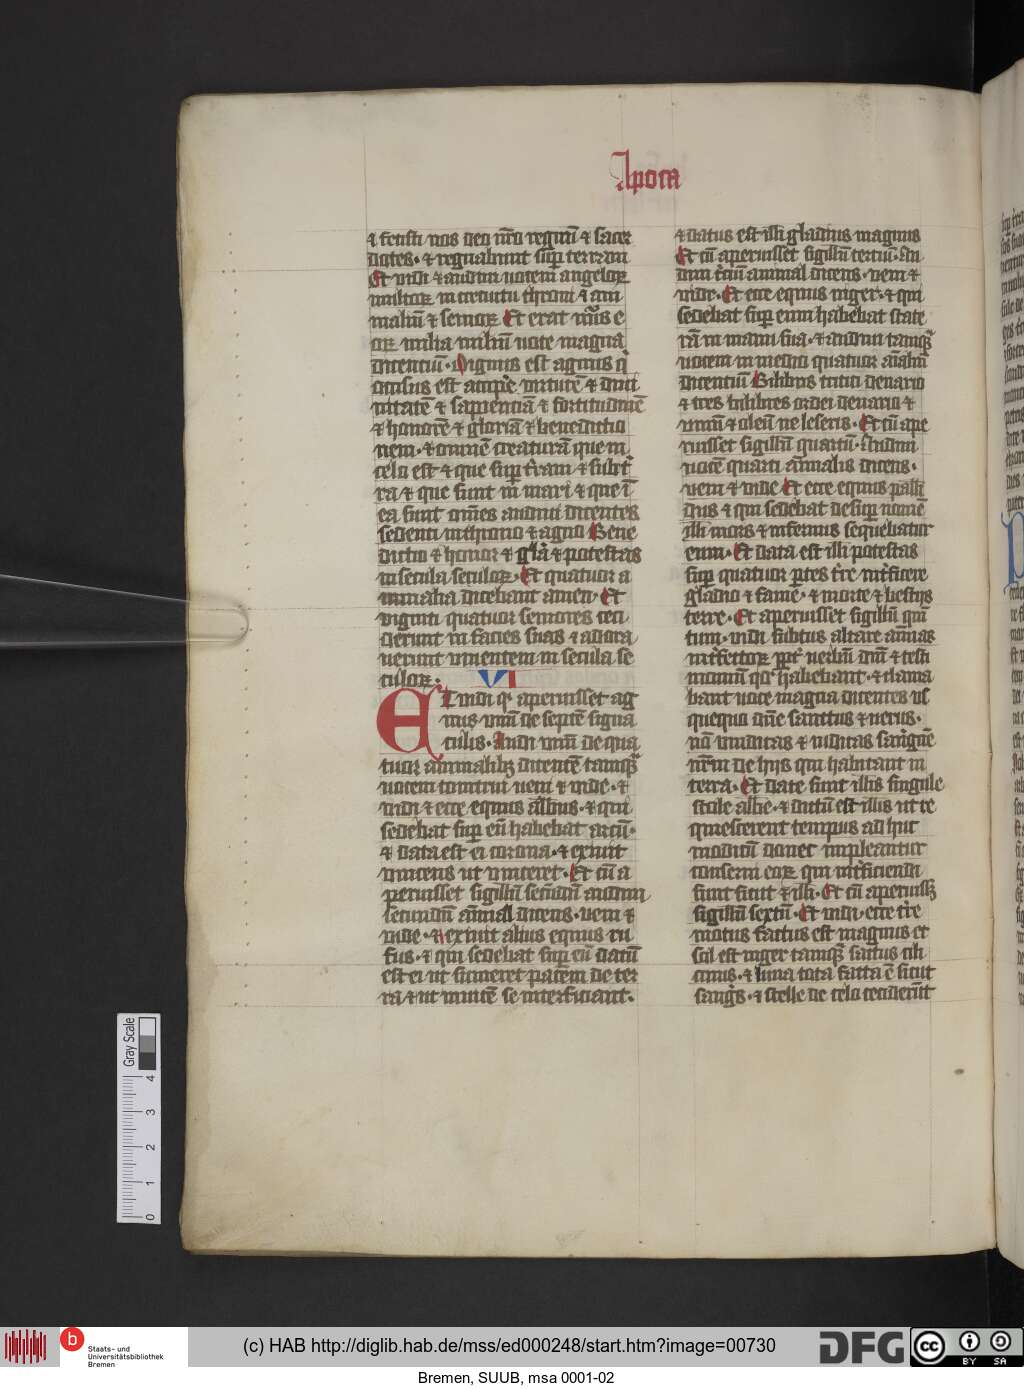 Apoca
⁊ fecisti nos deo nr̄o regnū ⁊ sacer
dotes· ⁊ regnabunt suꝑ terram
Et uidi ⁊ audiui uocem angeloꝝ
multoꝝ in circuitu throni ⁊ ani
maliū ⁊ senioꝝ Et erat nūs e
oꝝ milia miliū uoce magna
dicentiū· Dignus est agnus q̇
occisus est accipe uirtutē ⁊ diui
nitatē ⁊ sapienciā ⁊ fortitudinē
⁊ honorē ⁊ gloriā ⁊ benedictio
nem· ⁊ omnē creaturā que in
celo est ⁊ que suꝑ terram ⁊ subt
ra ⁊ que sunt in mari ⁊ que ī
ea sunt om̄es audiui dicentes
sedenti in throno ⁊ agno Bene
dictio ⁊ honor ⁊ glā ⁊ potestas
in secula seculoꝝ· Et quatuor a
nimalia dicebant amen· Et
viginti quatuor seniores ceci
derunt in facies suas ⁊ adora
uerunt uiuentem in secula se
culoꝝ· VI
ET uidi qͥ aperuisset ag
nus unū de septē signa
culis· Audi unū de qua
tuor animalibꝫ dicentē tamqͣ
uocem tonitrui ueni ⁊ uide· ⁊
uidi ⁊ ecce equus albus· ⁊ qui
sedebat suꝑ eū habebat arcū·
⁊ data est ei corona· ⁊ exiuit
uincens ut uinceret· Et cū a
peruisset sigillū secūdū audiui
secundum aīal dicens· ueni ⁊
uide· ⁊ exiuit alius equus ru
fus· ⁊ qui sedebat suꝑ eū datū
est ei ut sumeret pacem de ter
ra ⁊ ut inuicē se interficiant·
⁊ datus est illi gladius magnus
Et cū aperuisset sigillū terciū· au
diui t̄ciū animal dicens· ueni ⁊
uide· Et ecce equus niger· ⁊ qui
sedebat suꝑ eum habebat state
rā in manu sua· ⁊ audiui tamqͣ
uocem in medio quatuor aīaliū
dicentiū Bilibris tritici denario
⁊ tres bilibres ordei denario ⁊
uinū ⁊ oleū ne leseris· Et cū ape
ruisset sigillū quartū· Audiui
uocē quarti aīmalis dicens·
ueni ⁊ uide Et ecce equus palli
dus ⁊ qui sedebat desuꝑ nomē
illi mors ⁊ infernus sequebatur
eum· Et data est illi potestas
suꝑ quatuor ꝑtes t̄re int̄ficere
gladio ⁊ fame· ⁊ morte ⁊ bestijs
terre· Et aperuisset sigillū quī
tum· uidi subtus altare aīmas
int̄fectoꝝ ꝓpt̄ uerbū dei ⁊ testi
monium qͦd habebant· ⁊ clama
bant uoce magna dicentes us
quequo dn̄e sanctus ⁊ uerus·
nō uindicas ⁊ iudicas sanguinē
nr̄m de hijs qui habitant in
terra· Et date sunt illis singule
stole albe· ⁊ dictū est illis ut re
quiescerent tempus adhuc
modicū donec impleantur
conserui eoꝝ qui int̄ficiendi
sunt sicut ⁊ illi· Et cū aperuissꝫ
sigillū sextū· Et uidi· ecce t̄re
motus factus est magnus et
sol est niger tamqͣ saccus cili
cinus· ⁊ luna tota facta ē sicut
sangͥs· ⁊ stelle de celo cecider̄t
Gray Scale
4
3
2
1
0
b
Staats- und
Universitätsbibliothek
Bremen
(c) HAB http://diglib.hab.de/mss/ed000248/start.htm?image=00730
DFG
cc
BY SA
Bremen, SUUB, msa 0001-02